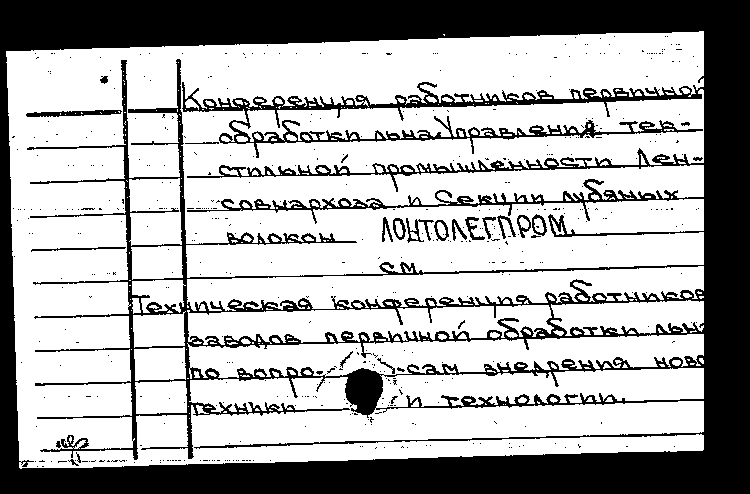 Конференция работников первичной
обработки льна Управления тек-
стильной промышленности Лен-
совнархоза и Секции лубяных
волокон ЛОНТОЛЕГПРОМ.
см.
Техническая конференция работников
заводов первичной обработки льна
по вопро-сам внедрения ново
техники и технологии.